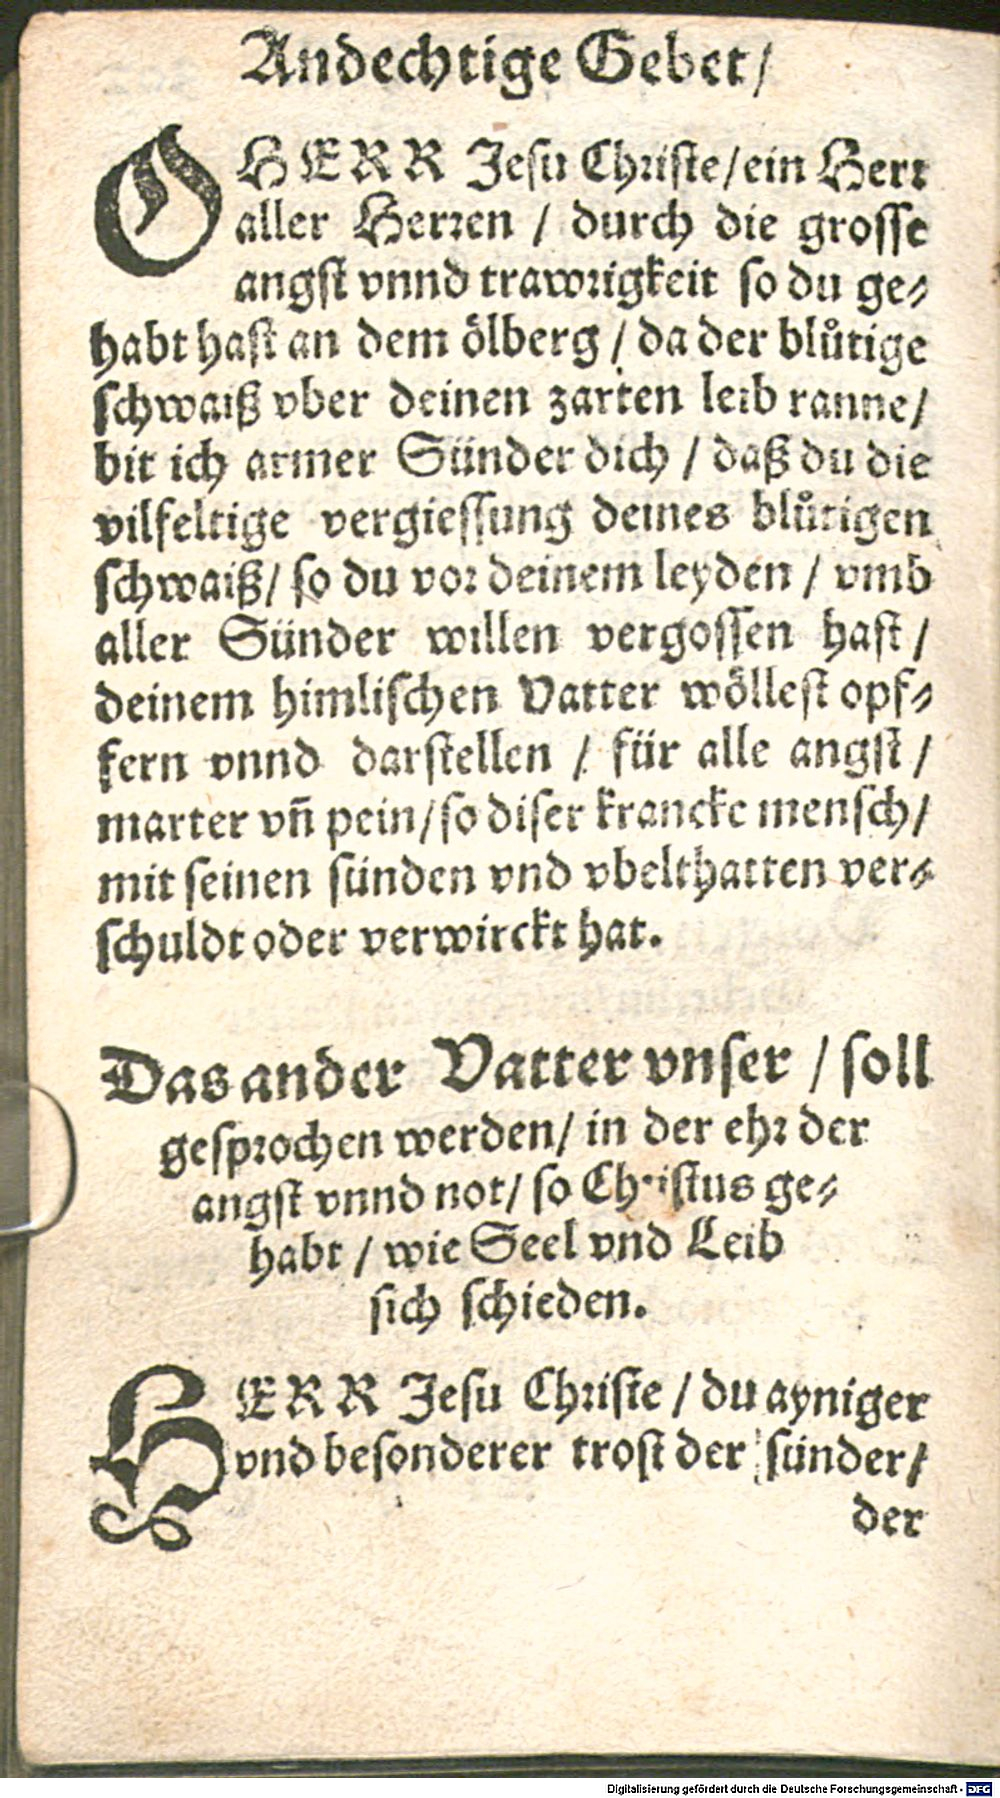 Andechtige Gebet/
O HERR Jesu Christe/ein Herr
aller Herren / durch die grosse
angst vnnd trawrigkeit so du ge-
habt hast an dem ölberg / da der blůtige
schwaiß vber deinen zarten leib ranne/
bit ich armer Sünder dich / daß du die
vilfeltige vergiessung deines blůtigen
schwaiß/ so du vor deinem leyden / vmb
aller Sünder willen vergossen hast /
deinem himlischen Vatter wöllest opf-
fern vnnd darstellen / für alle angst /
marter vñ pein/so diser krancke mensch/
mit seinen sünden vnd vbelthatten ver-
schuldt oder verwirckt hat.
Das ander Vatter vnser / soll
gesprochen werden/ in der ehr der
angst vnnd not/ so Christus ge-
habt / wie Seel vnd Leib
sich schieden.
HERR Jesu Christe / du ayniger
vnd besonderer trost der sünder/
der
Digitalisierung gefördert durch die Deutsche Forschungsgemeinschaft - DFG